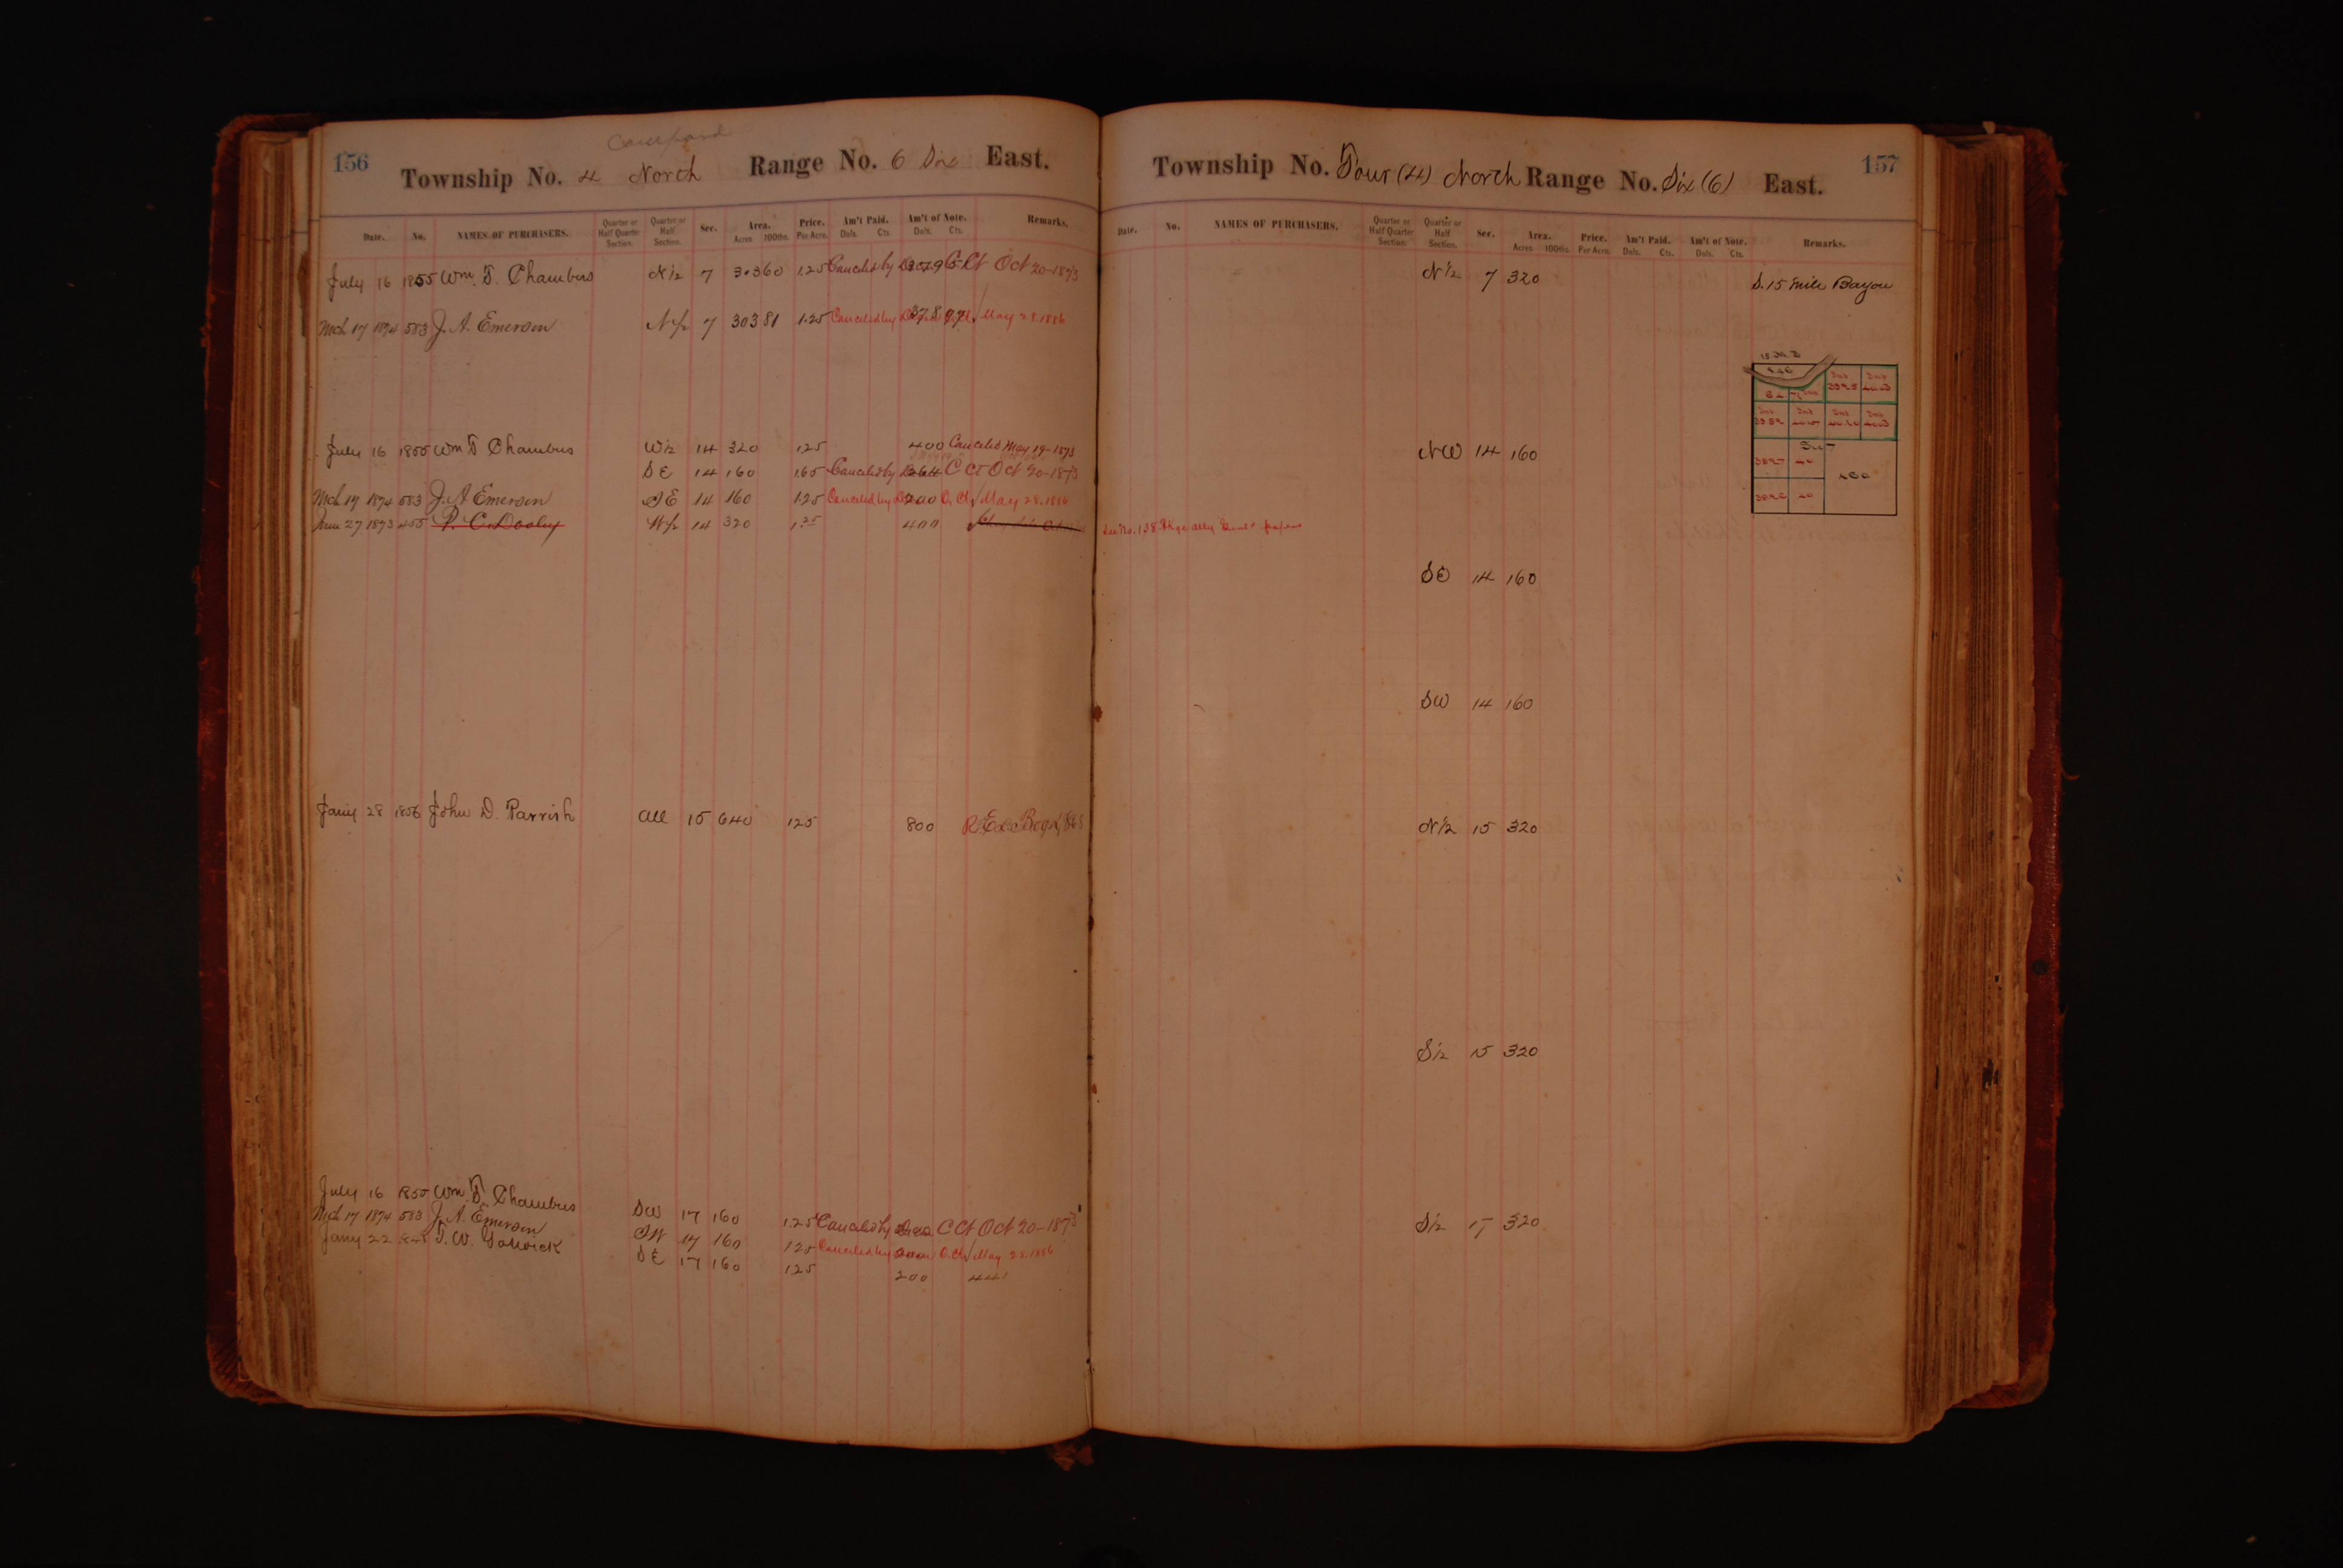 156
Township No. 4 North Range No. 6 Six East.
Date. No. NAMES OF PURCHASERS. Quarter or Half Quarter Section. Quarter or Half Section. Sec. Area. Acres 100ths. Price. Per Acre. Am't Paid. Dols. Cts. Am't of Note. Dols. Cts. Remarks.
July 16 1855 Wm. T. Chambers N1/2 7 303 60 1.25 Canceled by C Ct Oct 20-1873
Mch 17 1874 583 J. A. Emerson N/2 7 303 81 1.25 Canceled by C. Ct. May 28. 1886
July 16 1855 Wm T Chambers W1/2 14 320 1.25 400 Canceled May 19-1873
SE 14 160 1.65 Canceled by C Ct Oct 20-1873
Mch 17 1874 583 J. A Emerson SE 14 160 1.25 Canceled by C. Ct. May 28. 1886
June 27 1873 455 P. C. Dooley W/2 14 320 1.25 400
Jany 28 1856 John D. Parrish All 15 640 1.25 800
July 16 1855 Wm. T. Chambers SW 17 160 1.25 Canceled by C Ct Oct 20-1873
Mch 17 1874 583 J. A. Emerson SW 17 160 1.25 Canceled by C. Ct. May 28. 1886
Jany 22 T. W. SE 17 160 1.25 200
157
Township No. Four (4) North Range No. Six (6) East.
Date. No. NAMES OF PURCHASERS. Quarter or Half Quarter Section. Quarter or Half Section. Sec. Area. Acres 100ths. Price. Per Acre. Am't Paid. Dols. Cts. Am't of Note. Dols. Cts. Remarks.
N1/2 7 320 S. 15 mile Bayou
NW 14 160
See No. 138
SE 14 160
SW 14 160
N1/2 15 320
S1/2 15 320
S1/2 17 320